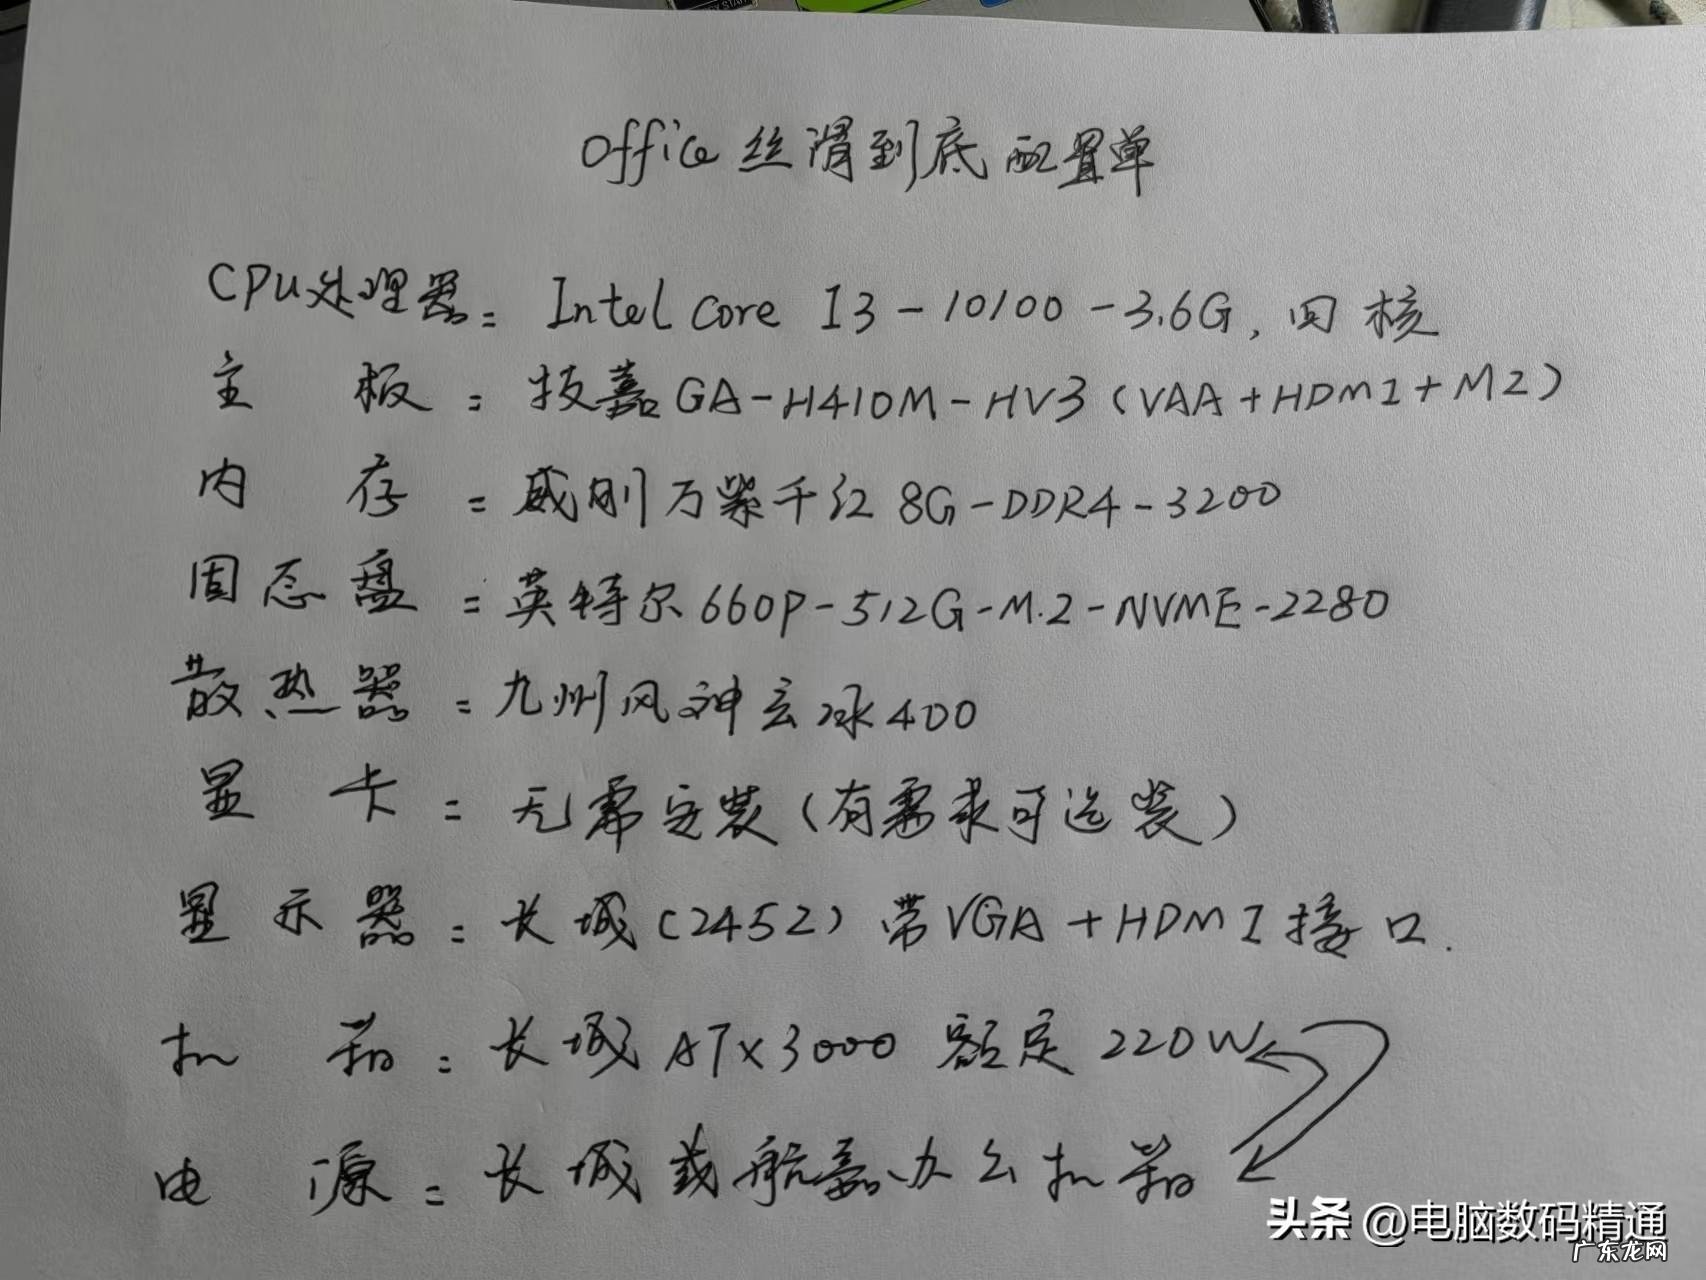 Office丝滑到底配置单
CPU处理器: Intel Core I3-10100-3.6G, 四核
主板: 技嘉GA-H410M-HV3(VAA+HDMI+M2)
内存: 威刚万紫千红8G-DDR4-3200
固态盘: 英特尔660P-512G-M.2-NVME-2280
散热器: 九州风神玄冰400
显卡: 无需安装(有需求可选装)
显示器: 长城(2452)带VGA+HDMI接口.
机箱: 长城ATX3000 额定220W
电源: 长城或航嘉办公机箱
头条 @电脑数码精通
广东龙网